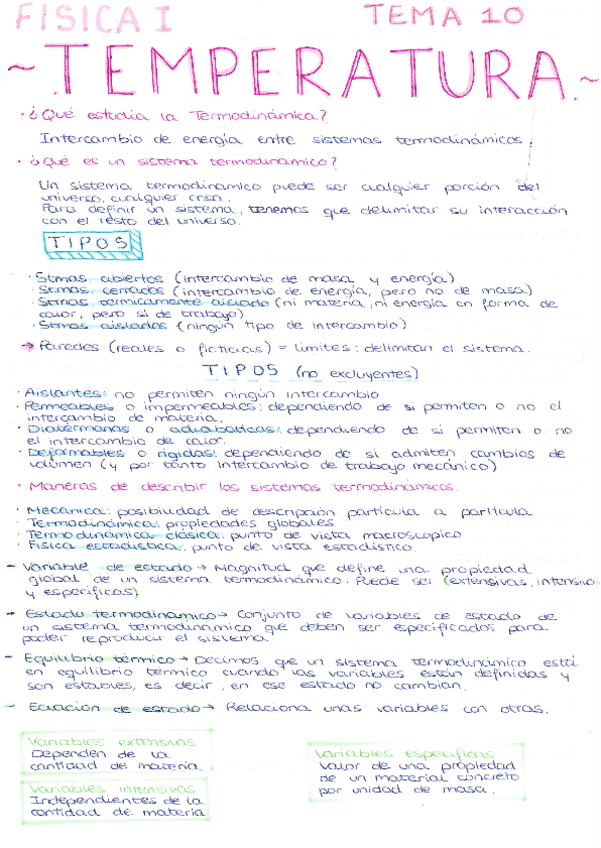 FISICA I
TEMA 10
~TEMPERATURA~
· ¿Qué estudia la Termodinámica?
Intercambio de energía entre sistemas termodinámicos
· ¿Qué es un sistema termodinámico?
Un sistema termodinámico puede ser cualquier porción del
universo, cualquier cosa.
Para definir un sistema, tenemos que delimitar su interacción
con el resto del universo.
TIPOS
· Stmas abiertos (intercambio de masa y energía)
· Stmas. cerrados (intercambio de energía, pero no de masa)
· Stmas termicamente aislado (ni materia, ni energía en forma de
calor, pero sí de trabajo)
· Stmas aislados (ningún tipo de intercambio)
→ Paredes (reales o ficticias) = límites: delimitan el sistema.
TIPOS (no excluyentes)
· Aislantes: no permiten ningún intercambio
· Permeables o impermeables: dependiendo de si permiten o no el
intercambio de materia.
· Diatermanas o adiabáticas: dependiendo de si permiten o no
el intercambio de calor.
· Deformables o rígidas: dependiendo de si admiten cambios de
volumen (y por tanto intercambio de trabajo mecánico)
· Maneras de describir los sistemas termodinámicos.
· Mecánica: posibilidad de descripción partícula a partícula
· Termodinámica: propiedades globales
· Termodinámica clásica: punto de vista macroscópico
· Física estadística: punto de vista estadístico.
- Variable de estado → Magnitud que define una propiedad
global de un sistema termodinámico. Puede ser (extensivas, intensiva
y específicas)
- Estado termodinámico → Conjunto de variables de estado de
un sistema termodinámico que deben ser especificados para
poder reproducir el sistema
- Equilibrio térmico → Decimos que un sistema termodinámico está
en equilibrio térmico cuando las variables están definidas y
son estables, es decir, en ese estado no cambian.
- Ecuación de estado → Relaciona unas variables con otras.
Variables extensivas
Dependen de la
cantidad de materia
Variables intensivas
Independientes de la
cantidad de materia
Variables específicas
Valor de una propiedad
de un material concreto
por unidad de masa.